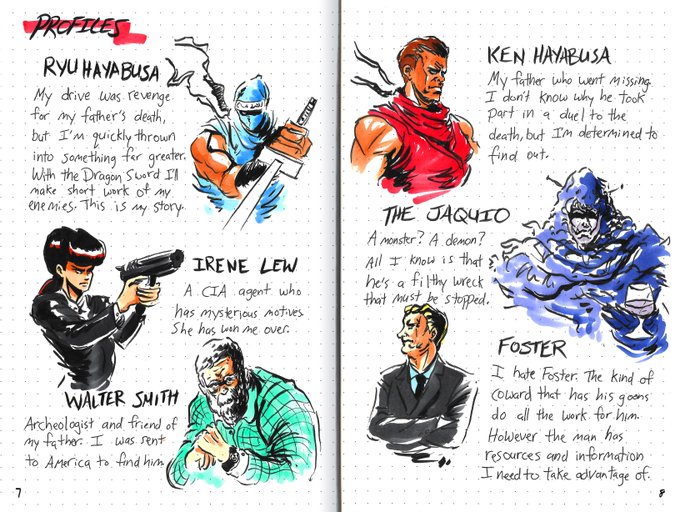 PROFILES
RYU HAYABUSA
My drive was revenge
for my father's death,
but I'm quickly thrown
into something far greater.
With the Dragon Sword I'll
make short work of my
enemies. This is my story.
IRENE LEW
A CIA agent who
has mysterious motives
She has won me over.
WALTER SMITH
Archeologist and friend of
my father. I was sent
to America to find him
7
KEN HAYABUSA
My father who went missing.
I don't know why he took
part in a duel to the
death, but I'm determined to
find out.
THE JAQUIO
A monster? A demon?
All I know is that
he's a filthy wreck
that must be stopped.
FOSTER
I hate Foster. The kind of
coward that has his goons
do all the work for him.
However the man has
resources and information
I need to take advantage of.
8